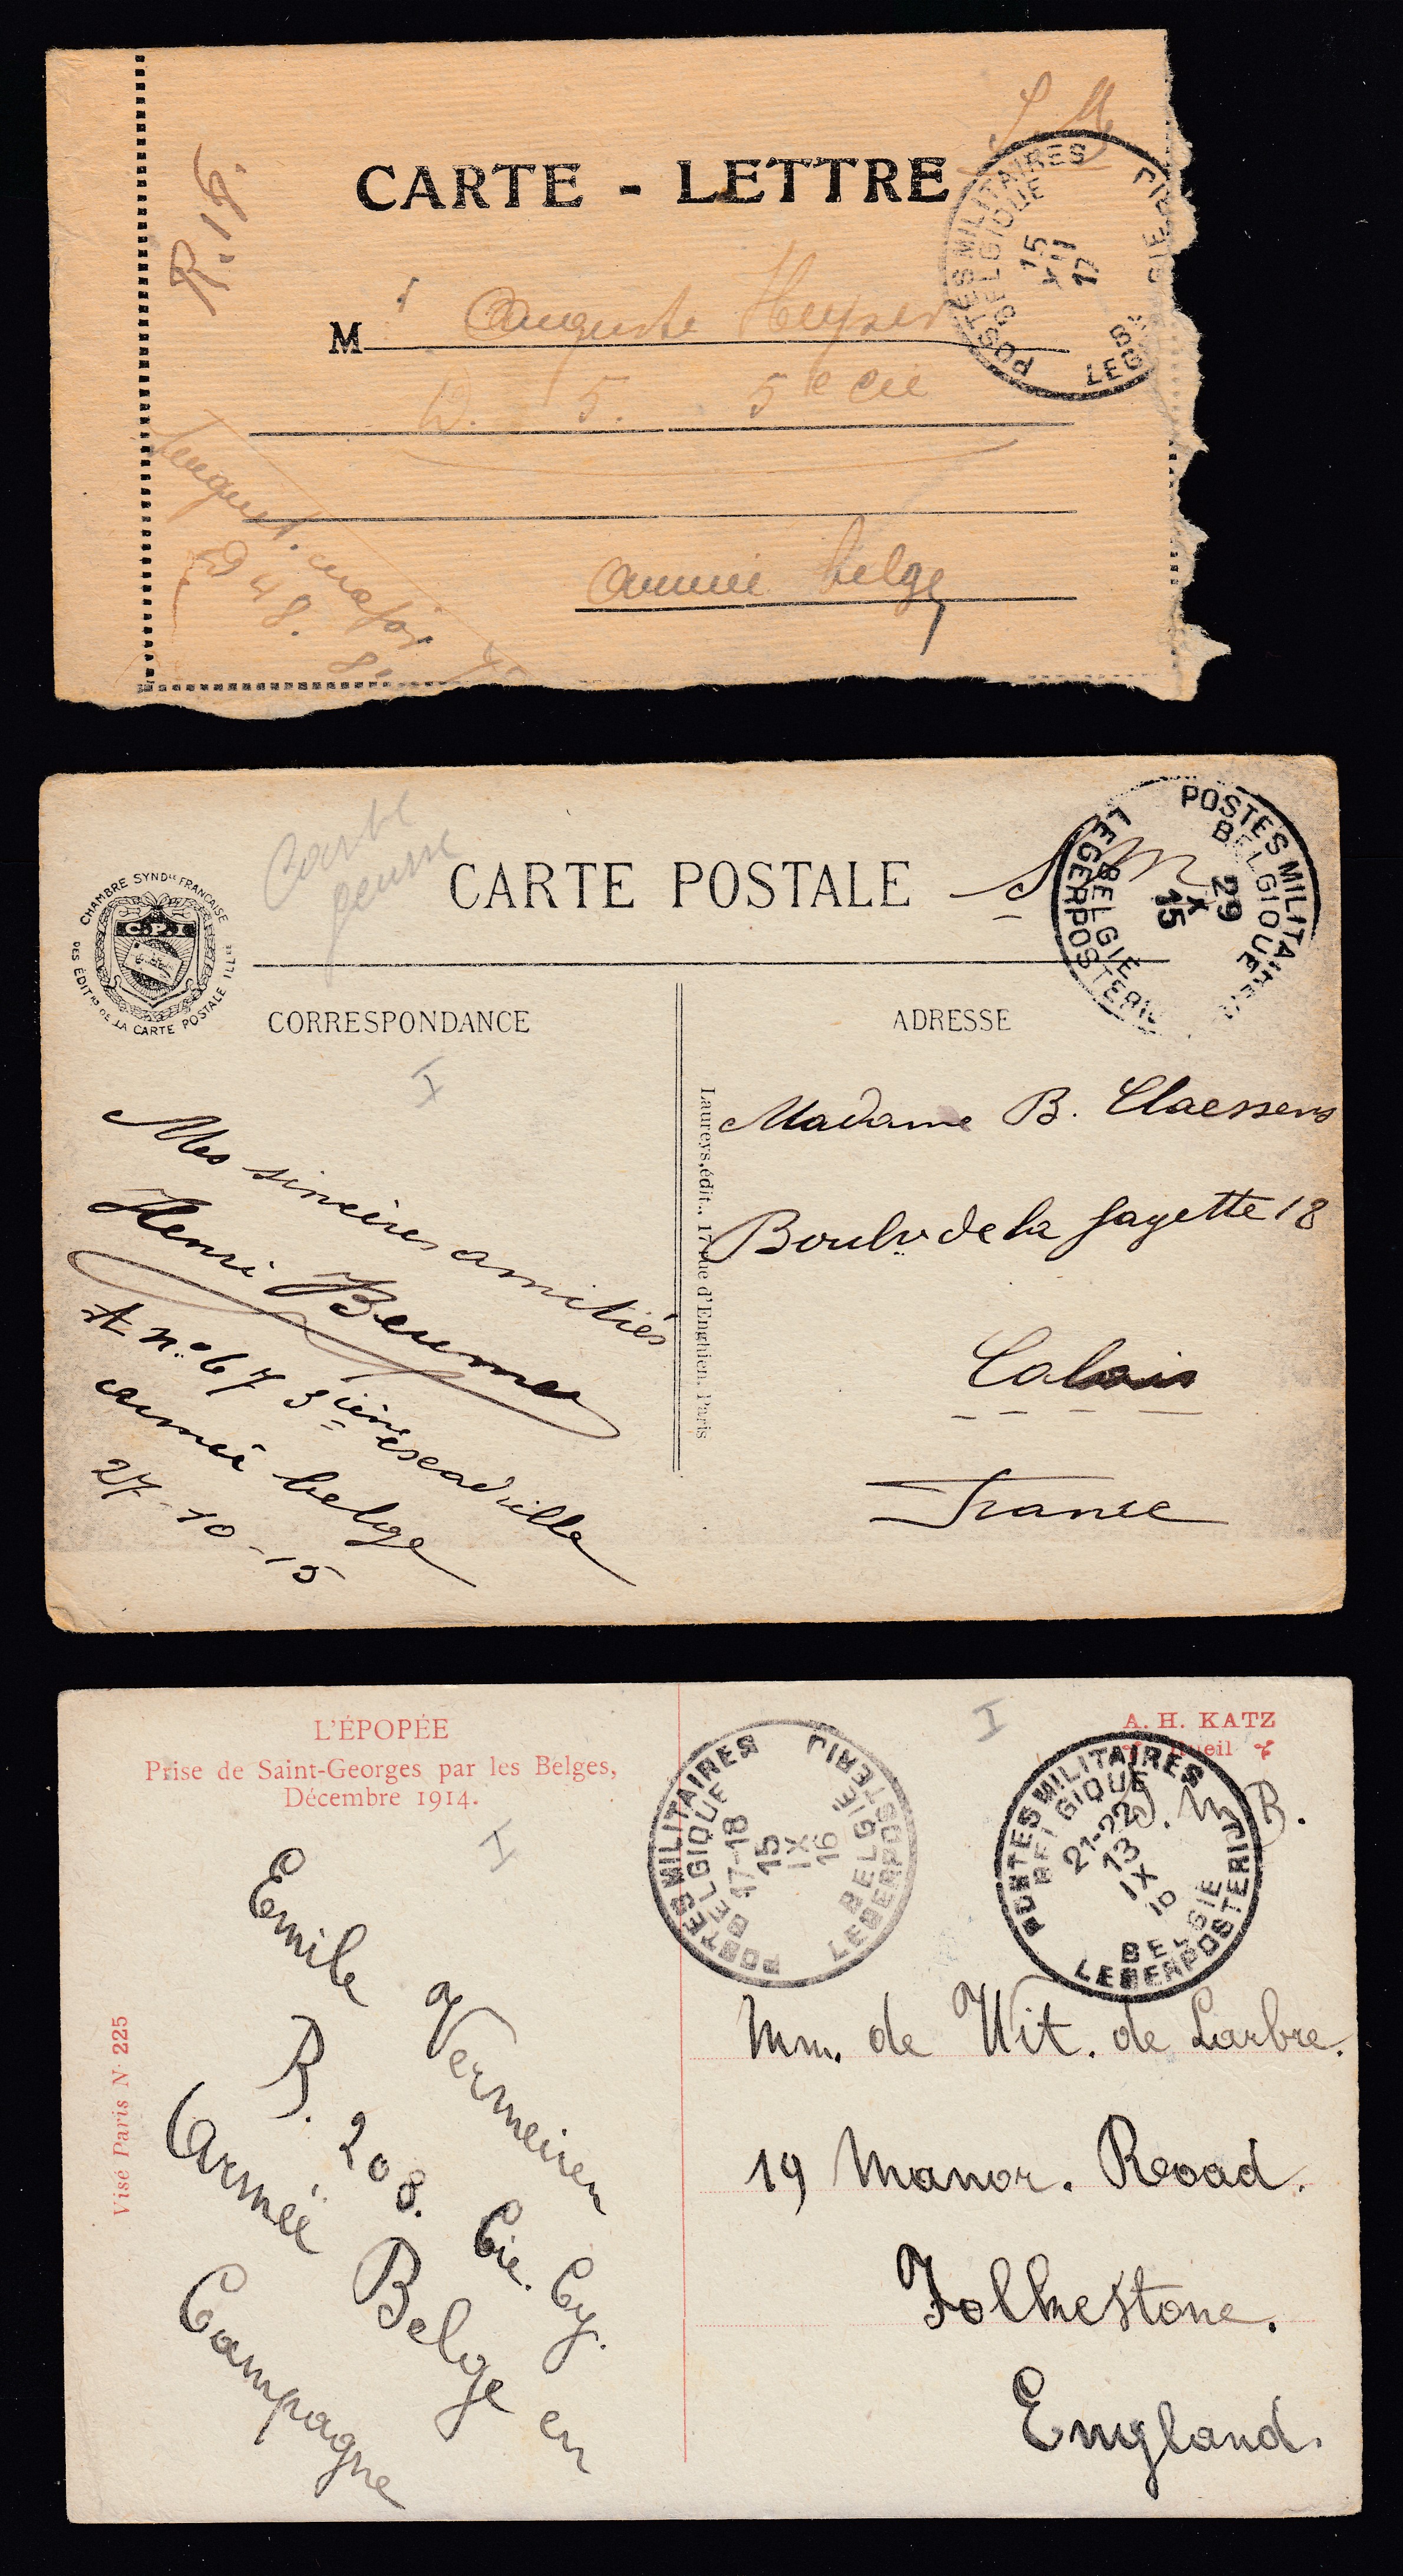 S.M.
R.15.
CARTE - LETTRE
POSTES MILITAIRES
BELGIQUE
15
XII
17
M Auguste Heyser
D. 5. 5e Cie
D 48.
armée belge
Carte
CARTE POSTALE
S M
CHAMBRE SYNDle FRANÇAISE
DES ÉDITrs DE LA CARTE POSTALE ILLrée
C.P.I
POSTES MILITAIRES
BELGIQUE
29
X
15
BELGIE
LEGERPOSTERIJ
CORRESPONDANCE
ADRESSE
I
Mes sincères amitiés
Henri
A no 67 3ième escadrille
armée belge
27-10-15
Laureys, édit., 17 rue d'Enghien, Paris
Madame B. Claessens
Boulv de la fayette 18
Calais
France
L'ÉPOPÉE
Prise de Saint-Georges par les Belges,
Décembre 1914.
I
Visé Paris No 225
Emile Vermeiren
B. 208. Cie. Cy.
Armée Belge en
Campagne
POSTES MILITAIRES
BELGIQUE
17-18
15
IX
16
BELGIE
LEGERPOSTERIJ
I
A. H. KATZ
Rueil
S. M. B.
POSTES MILITAIRES
BELGIQUE
21-22
13
IX
BELGIE
LEGERPOSTERIJ
Mm. de Wit. de Larbre.
19 Manor. Rooad.
Folkestone.
England.